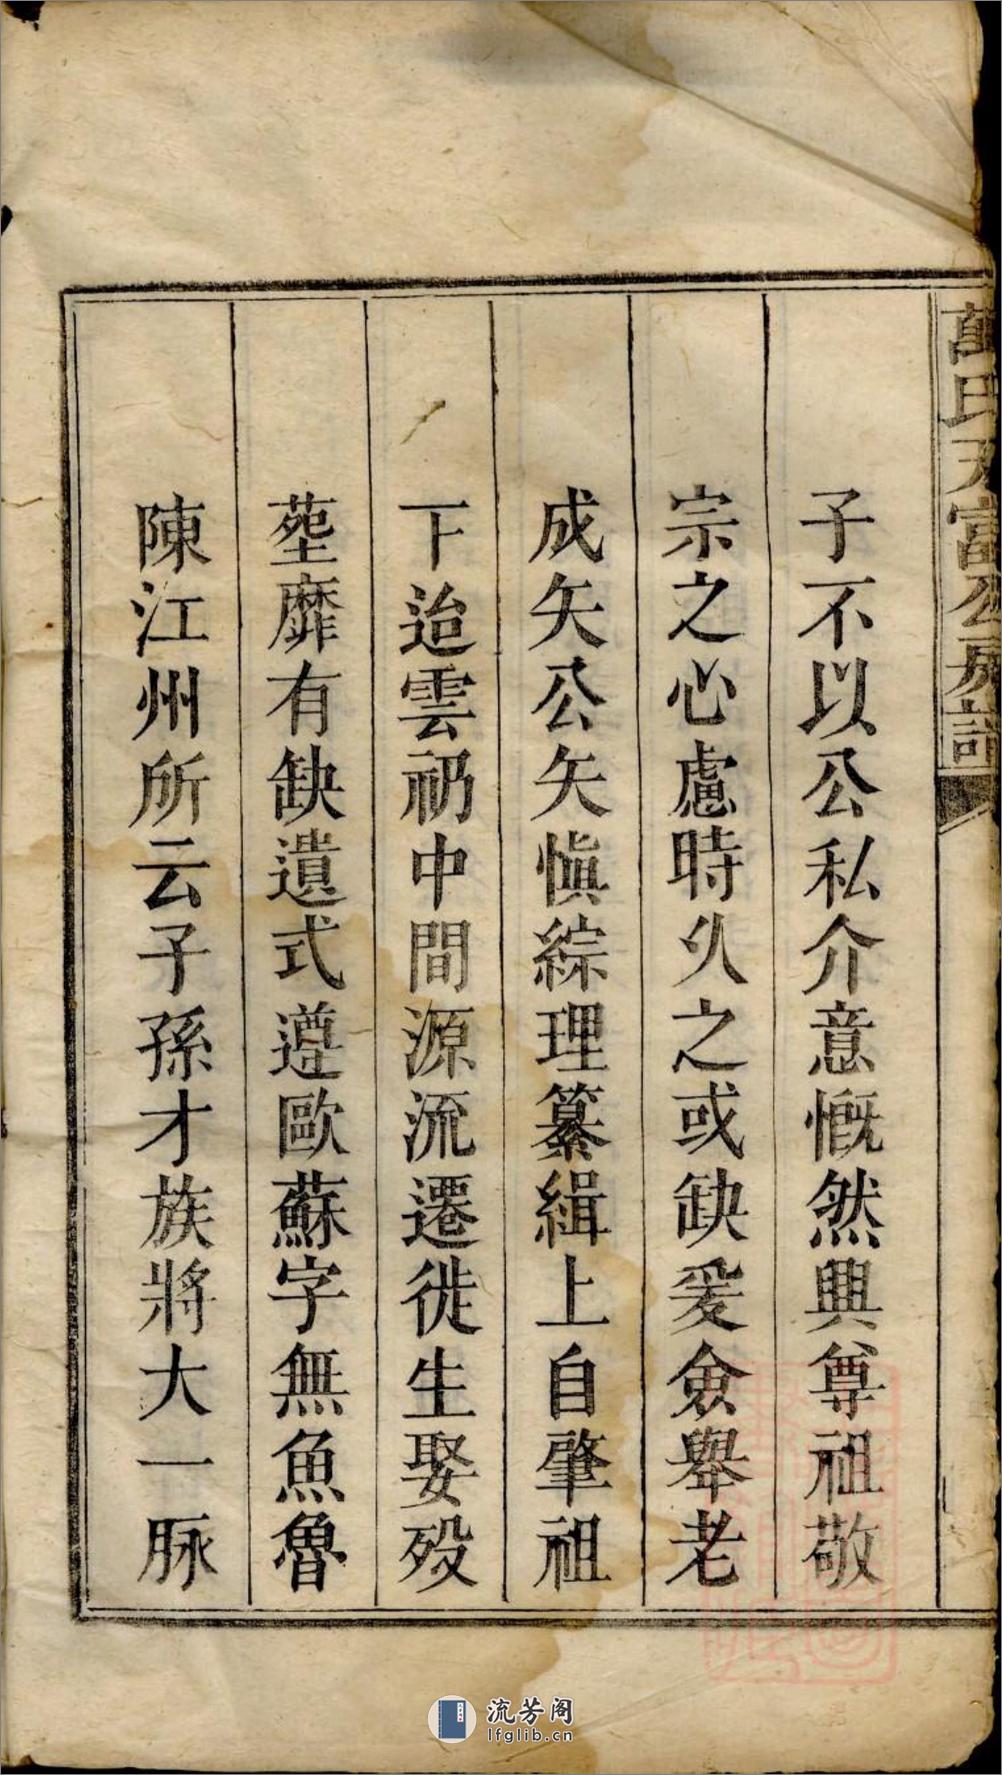 萬氏天富公房譜
子不以公私介意慨然興尊祖敬
宗之心慮時乆之或缺爰僉舉老
成矢公矢愼綜理纂緝上自肇祖
下迨雲礽中間源流遷徙生娶歿
塟靡有缺遺式遵歐蘇字無魚魯
陳江州所云子孫才族將大一脉
流芳阁
lfglib.cn